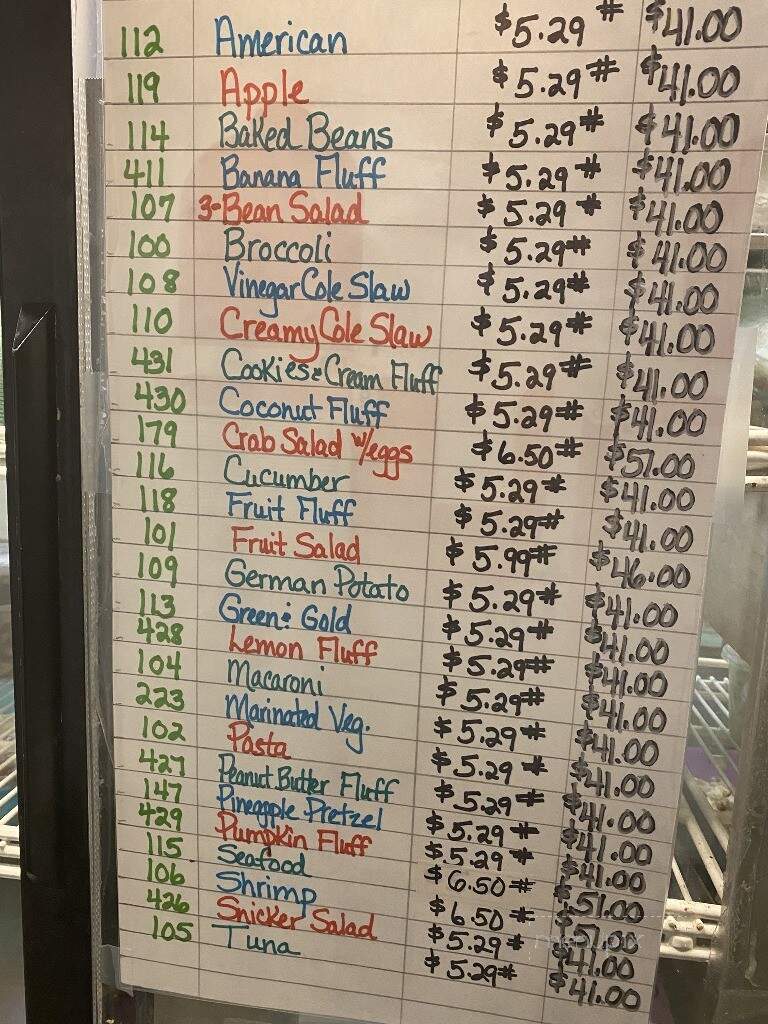 112 American $5.29# $41.00
119 Apple $5.29# $41.00
114 Baked Beans $5.29# $41.00
411 Banana Fluff $5.29# $41.00
107 3-Bean Salad $5.29# $41.00
100 Broccoli $5.29# $41.00
108 Vinegar Cole Slaw $5.29# $41.00
110 Creamy Cole Slaw $5.29# $41.00
431 Cookies & Cream Fluff $5.29# $41.00
430 Coconut Fluff $5.29# $41.00
179 Crab Salad w/eggs $6.50# $51.00
116 Cucumber $5.29# $41.00
118 Fruit Fluff $5.29# $41.00
101 Fruit Salad $5.99# $46.00
109 German Potato $5.29# $41.00
113 Green & Gold $5.29# $41.00
428 Lemon Fluff $5.29# $41.00
104 Macaroni $5.29# $41.00
223 Marinated Veg. $5.29# $41.00
102 Pasta $5.29# $41.00
427 Peanut Butter Fluff $5.29# $41.00
147 Pineapple Pretzel $5.29# $41.00
429 Pumpkin Fluff $5.29# $41.00
115 Seafood $6.50# $51.00
106 Shrimp $6.50# $51.00
426 Snicker Salad $5.29# $41.00
105 Tuna $5.29# $41.00